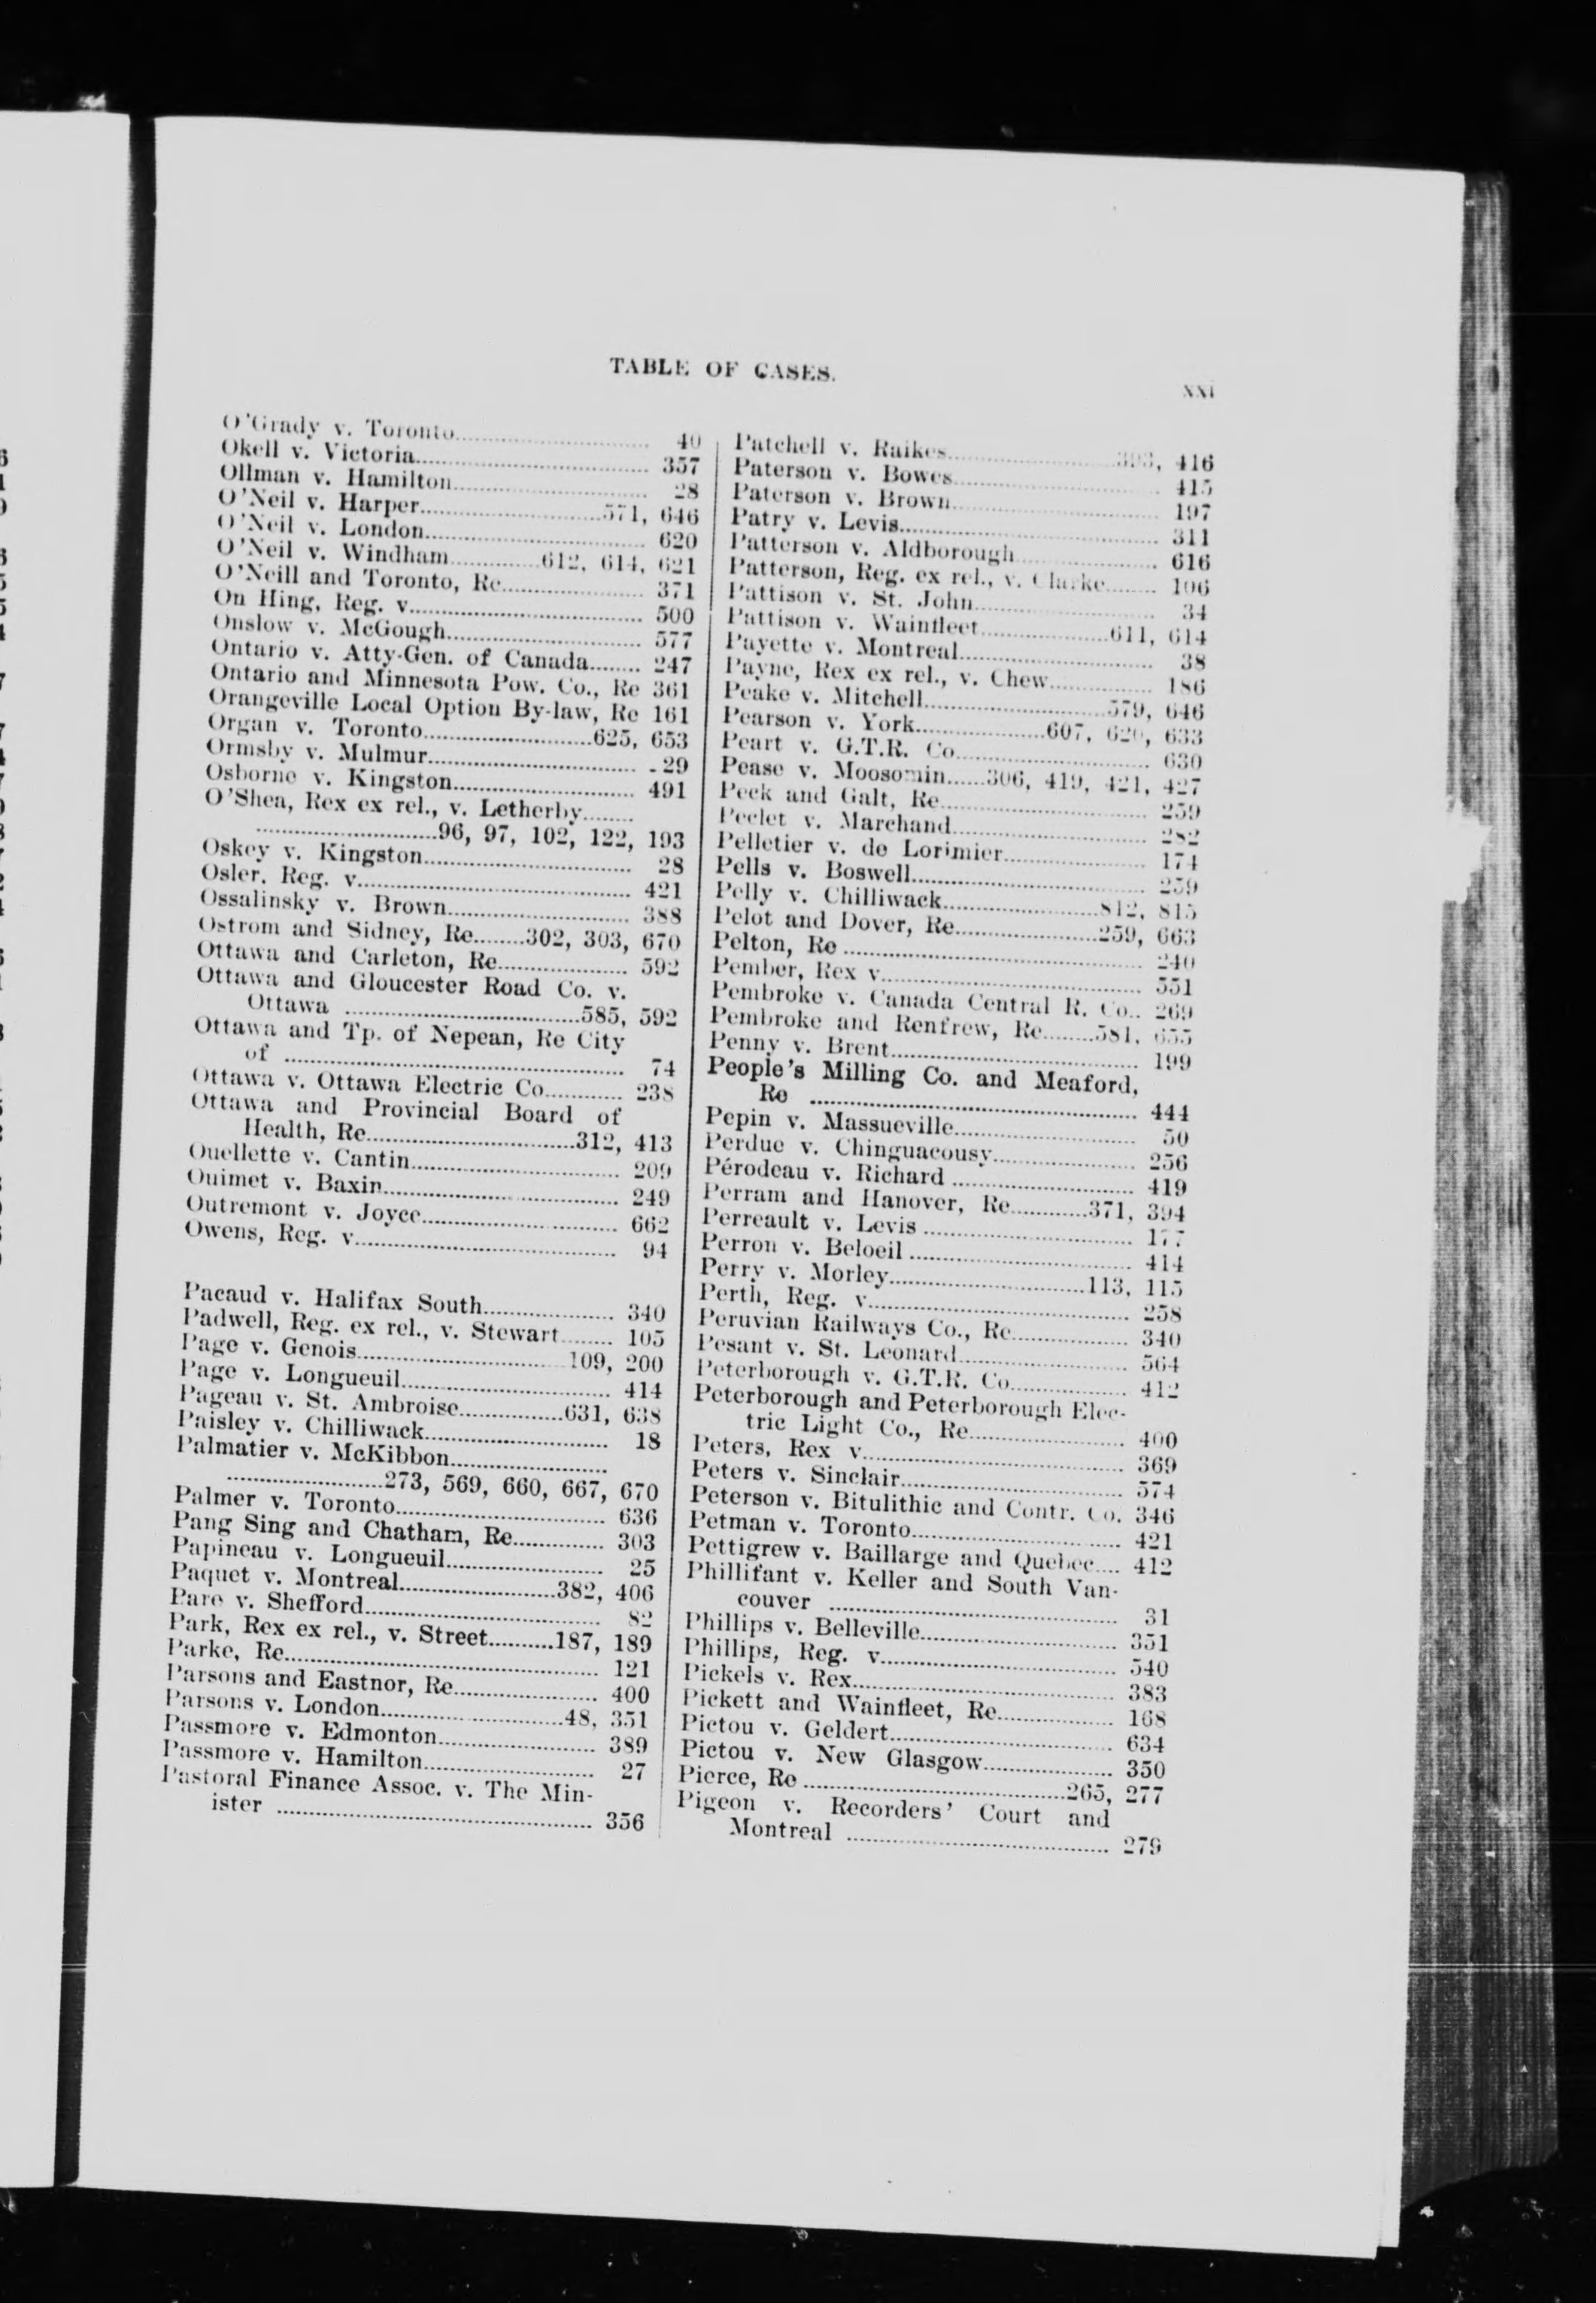 TABLE OF CASES.
xxi
O'Grady v. Toronto.......... 40
Okell v. Victoria.......... 357
Ollman v. Hamilton.......... 28
O'Neil v. Harper..........571, 646
O'Neil v. London.......... 620
O'Neil v. Windham..........612, 614, 621
O'Neill and Toronto, Re.......... 371
On Hing, Reg. v.......... 500
Onslow v. McGough.......... 577
Ontario v. Atty-Gen. of Canada........ 247
Ontario and Minnesota Pow. Co., Re 361
Orangeville Local Option By-law, Re 161
Organ v. Toronto..........625, 653
Ormsby v. Mulmur.......... 29
Osborne v. Kingston.......... 491
O'Shea, Rex ex rel., v. Letherby........
..........96, 97, 102, 122, 193
Oskey v. Kingston.......... 28
Osler, Reg. v.......... 421
Ossalinsky v. Brown.......... 388
Ostrom and Sidney, Re........302, 303, 670
Ottawa and Carleton, Re.......... 592
Ottawa and Gloucester Road Co. v.
Ottawa ..........585, 592
Ottawa and Tp. of Nepean, Re City
of .......... 74
Ottawa v. Ottawa Electric Co.......... 238
Ottawa and Provincial Board of
Health, Re..........312, 413
Ouellette v. Cantin.......... 209
Ouimet v. Bazin.......... 249
Outremont v. Joyce.......... 662
Owens, Reg. v.......... 94
Pacaud v. Halifax South.......... 340
Padwell, Reg. ex rel., v. Stewart........ 105
Page v. Genois..........109, 200
Page v. Longueuil.......... 414
Pageau v. St. Ambroise..........631, 638
Paisley v. Chilliwack.......... 18
Palmatier v. McKibbon..........
..........273, 569, 660, 667, 670
Palmer v. Toronto.......... 636
Pang Sing and Chatham, Re.......... 303
Papineau v. Longueuil.......... 25
Paquet v. Montreal..........382, 406
Pare v. Shefford.......... 82
Park, Rex ex rel., v. Street..........187, 189
Parke, Re.......... 121
Parsons and Eastnor, Re.......... 400
Parsons v. London..........48, 351
Passmore v. Edmonton.......... 389
Passmore v. Hamilton.......... 27
Pastoral Finance Assoc. v. The Min-
ister .......... 356
Patchell v. Raikes..........393, 416
Paterson v. Bowes.......... 415
Paterson v. Brown.......... 197
Patry v. Levis.......... 311
Patterson v. Aldborough.......... 616
Patterson, Reg. ex rel., v. Clarke........ 106
Pattison v. St. John.......... 34
Pattison v. Wainfleet..........611, 614
Payette v. Montreal.......... 38
Payne, Rex ex rel., v. Chew.......... 186
Peake v. Mitchell..........579, 646
Pearson v. York..........607, 620, 633
Peart v. G.T.R. Co.......... 630
Pease v. Moosomin......306, 419, 421, 427
Peck and Galt, Re.......... 259
Peclet v. Marchand.......... 282
Pelletier v. de Lorimier.......... 174
Pells v. Boswell.......... 259
Pelly v. Chilliwack..........812, 815
Pelot and Dover, Re..........259, 663
Pelton, Re .......... 240
Pember, Rex v.......... 551
Pembroke v. Canada Central R. Co.. 269
Pembroke and Renfrew, Re........581, 655
Penny v. Brent.......... 199
People's Milling Co. and Meaford,
Re .......... 444
Pepin v. Massueville.......... 50
Perdue v. Chinguacousy.......... 256
Pérodeau v. Richard .......... 419
Perram and Hanover, Re..........371, 394
Perreault v. Levis .......... 177
Perron v. Beloeil .......... 414
Perry v. Morley..........113, 115
Perth, Reg. v.......... 258
Peruvian Railways Co., Re.......... 340
Pesant v. St. Leonard.......... 564
Peterborough v. G.T.R. Co.......... 412
Peterborough and Peterborough Elec-
tric Light Co., Re.......... 400
Peters, Rex v.......... 369
Peters v. Sinclair.......... 574
Peterson v. Bitulithic and Contr. Co. 346
Petman v. Toronto.......... 421
Pettigrew v. Baillarge and Quebec.... 412
Phillifant v. Keller and South Van-
couver .......... 31
Phillips v. Belleville.......... 351
Phillips, Reg. v.......... 540
Pickels v. Rex.......... 383
Pickett and Wainfleet, Re.......... 168
Pictou v. Geldert.......... 634
Pictou v. New Glasgow.......... 350
Pierce, Re ..........265, 277
Pigeon v. Recorders' Court and
Montreal .......... 279